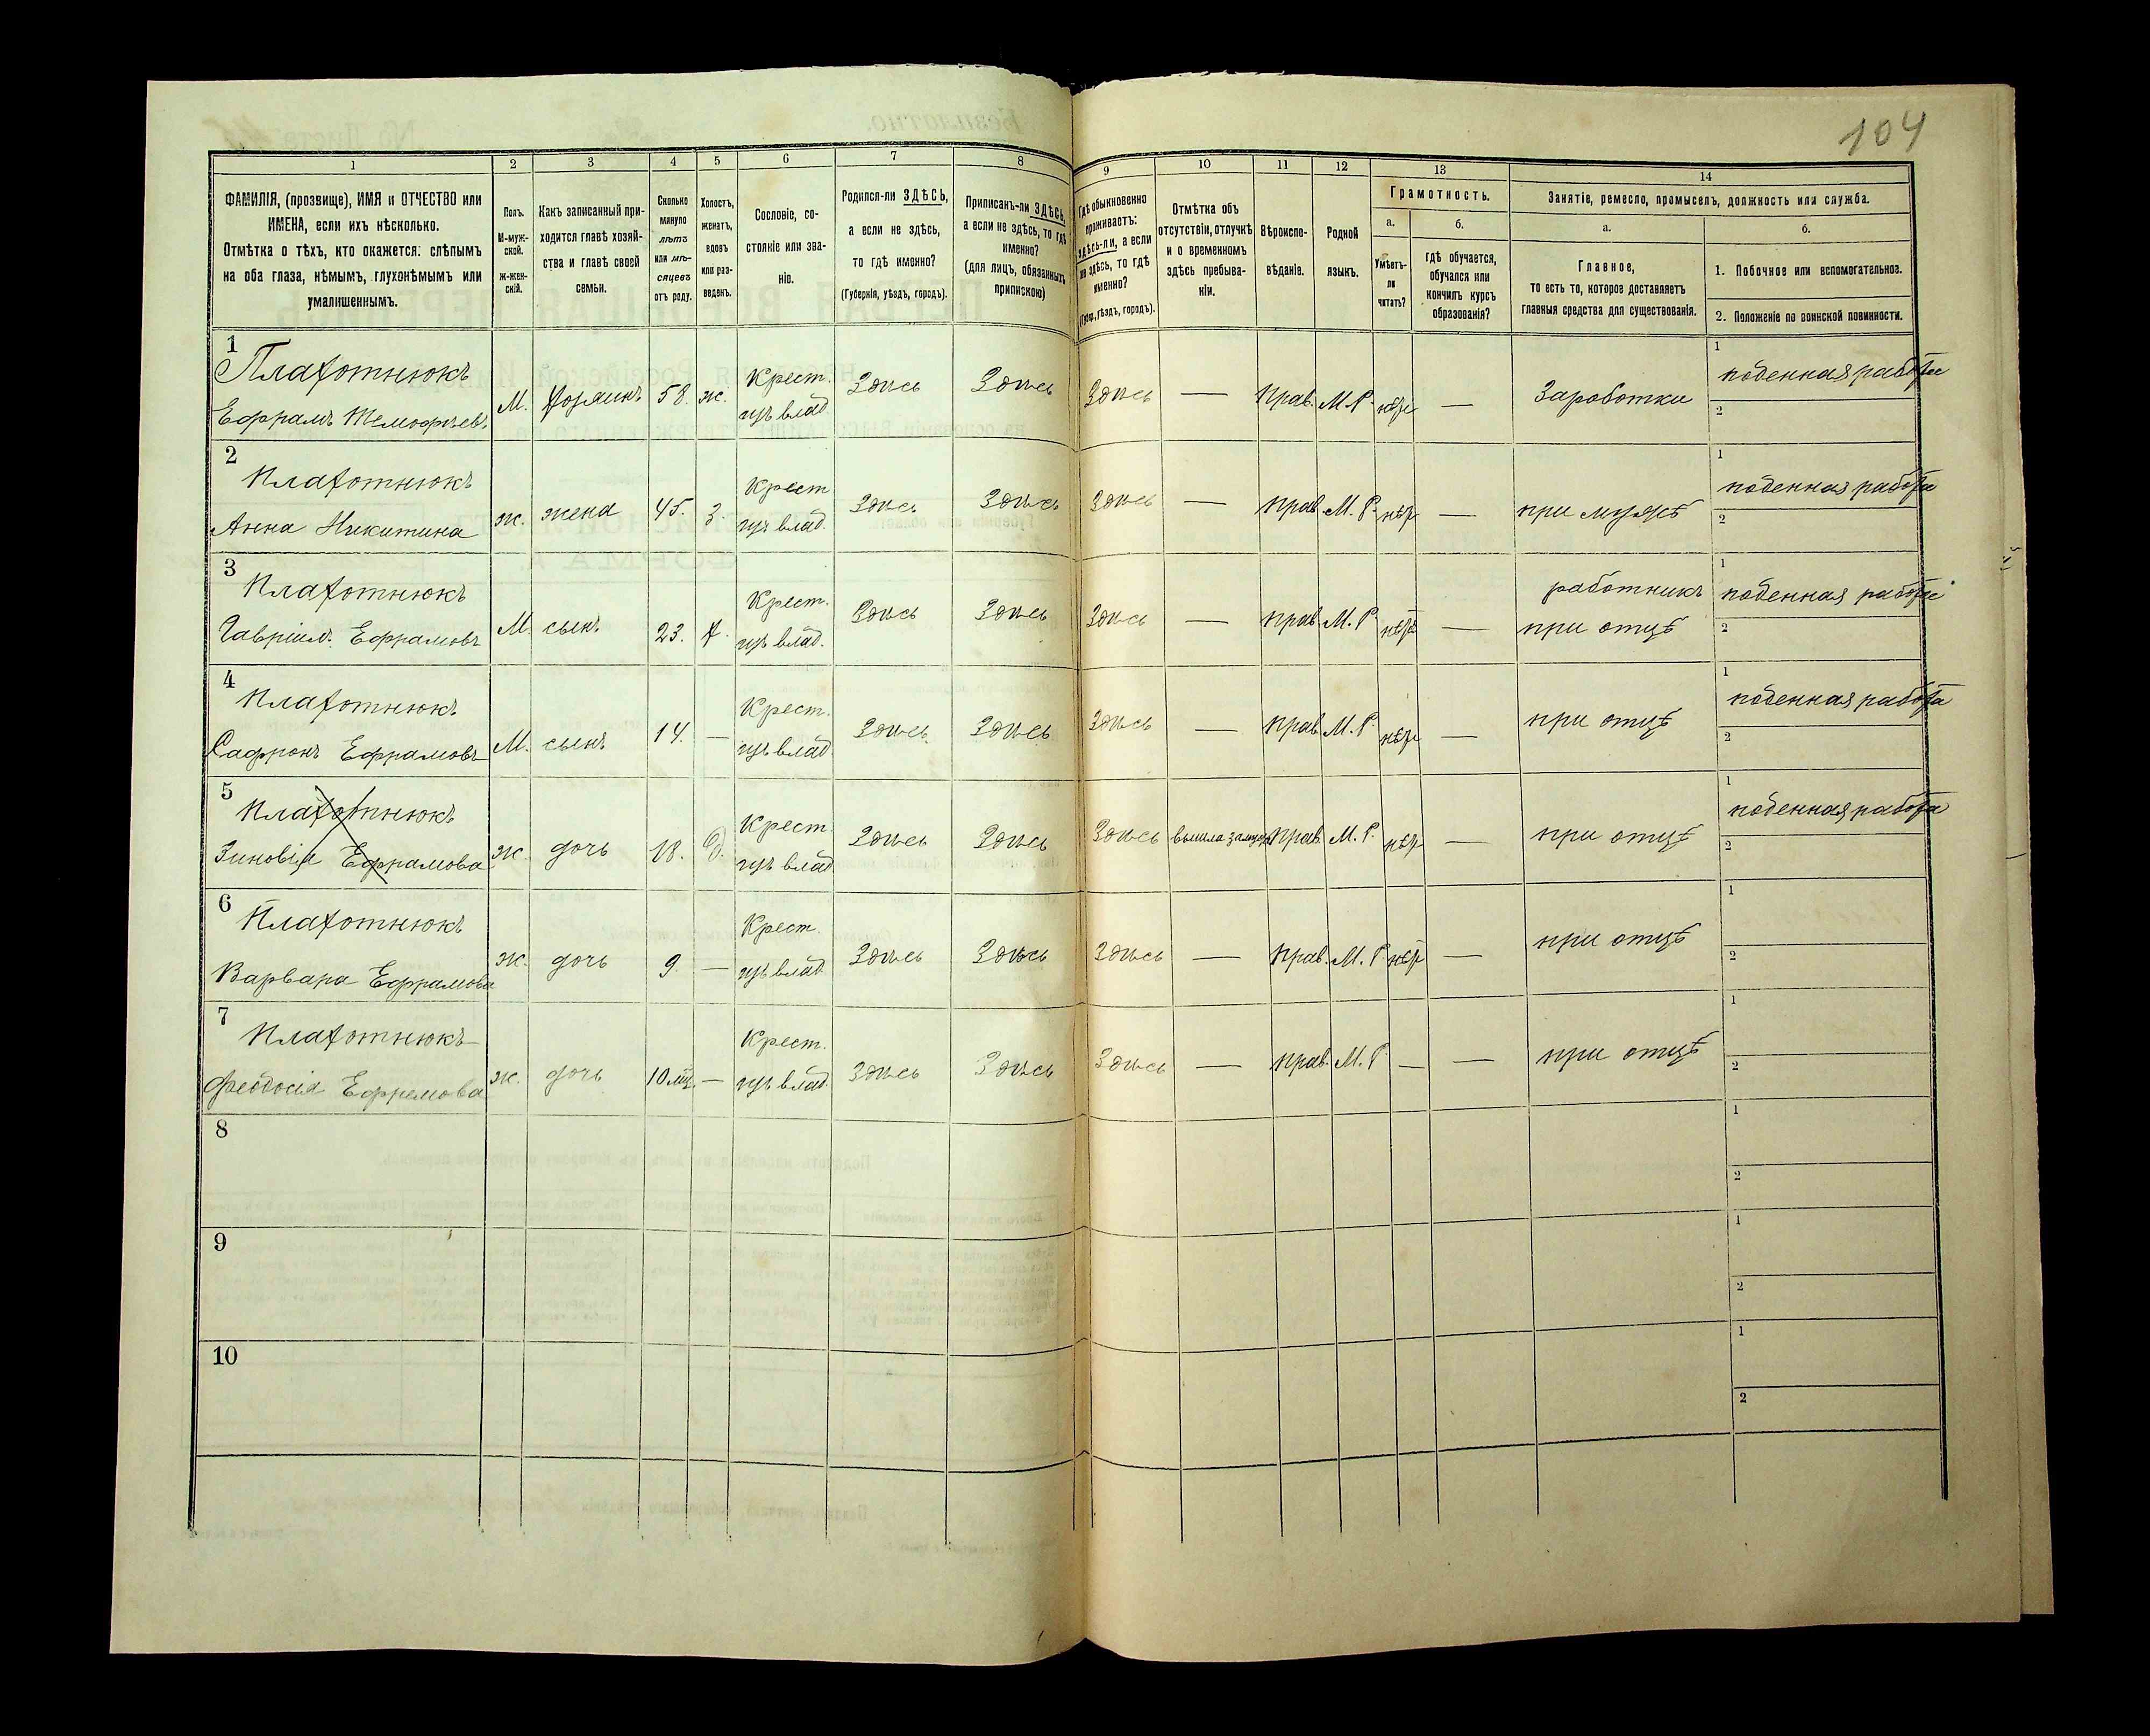 104
1
2
3
4
5
6
7
8
9
10
11
12
13
14
ФАМИЛІЯ, (прозвище), ИМЯ и ОТЧЕСТВО или
ИМЕНА, если ихъ нѣсколько.
Отмѣтка о тѣхъ, кто окажется: слѣпымъ
на оба глаза, нѣмымъ, глухонѣмымъ или
умалишеннымъ.
Полъ.
М-муж-
ской.
ж-жен-
скій.
Какъ записанный при-
ходится главѣ хозяй-
ства и главѣ своей
семьи.
Сколько
минуло
лѣтъ
или мѣ-
сяцевъ
отъ роду.
Холостъ,
женатъ,
вдовъ
или раз-
веденъ.
Сословіе, со-
стояніе или зва-
ніе.
Родился-ли ЗДѢСЬ,
а если не здѣсь,
то гдѣ именно?
(Губернія, уѣздъ, городъ).
Приписанъ-ли ЗДѢСЬ,
а если не здѣсь, то гдѣ
именно?
(для лицъ, обязанныхъ
припискою)
Гдѣ обыкновенно
проживаетъ:
здѣсь-ли, а если
не здѣсь, то гдѣ
именно?
(Губер., уѣздъ, городъ).
Отмѣтка объ
отсутствіи, отлучкѣ
и о временномъ
здѣсь пребыва-
ніи.
Вѣроиспо-
вѣданіе.
Родной
языкъ.
Грамотность.
а.
Умѣетъ-
ли
читать?
б.
гдѣ обучается,
обучался или
кончилъ курсъ
образованія?
Занятіе, ремесло, промыселъ, должность или служба.
а.
Главное,
то есть то, которое доставляетъ
главныя средства для существованія.
б.
1. Побочное или вспомогательное.
2. Положеніе по воинской повинности.
1
Плахотнюкъ
Ефрамъ
М. Хозяинъ 58. ж. Крест. изъ влад. Здѣсь Здѣсь Здѣсь — Прав. М.Р. нѣтъ — Заработки
1 поденная работа
2
2
Плахотнюкъ
Анна Никитина
ж. жена 45. З. Крест изъ влад. Здѣсь Здѣсь Здѣсь — прав М. Р. нѣтъ — при мужѣ
1 поденная работа
2
3
Плахотнюкъ
Гавріилъ Ефрамовъ
М. сынъ 23. Х. Крест. изъ влад. Здѣсь Здѣсь Здѣсь — прав М. Р. нѣтъ — работникъ при отцѣ
1 поденная работа
2
4
Плахотнюкъ
Сафронъ Ефрамовъ
М. сынъ 14. — Крест. изъ влад. Здѣсь Здѣсь Здѣсь — прав М. Р. нѣтъ — при отцѣ
1 поденная работа
2
5
Плахотнюкъ
Зиновія Ефрамова
ж. дочь 18. Д. Крест. изъ влад Здѣсь Здѣсь Здѣсь вышла замужъ прав М. Р. нѣтъ — при отцѣ
1 поденная работа
2
6
Плахотнюкъ
Варвара Ефрамова
ж. дочь 9 — Крест. изъ влад Здѣсь Здѣсь Здѣсь — прав. М. Р. нѣтъ — при отцѣ
1
2
7
Плахотнюкъ
Феодосія Ефремова
ж. дочь 10 мц. — Крест. изъ влад. Здѣсь Здѣсь Здѣсь — прав. М. Р. — — при отцѣ
1
2
8
1
2
9
1
2
10
1
2